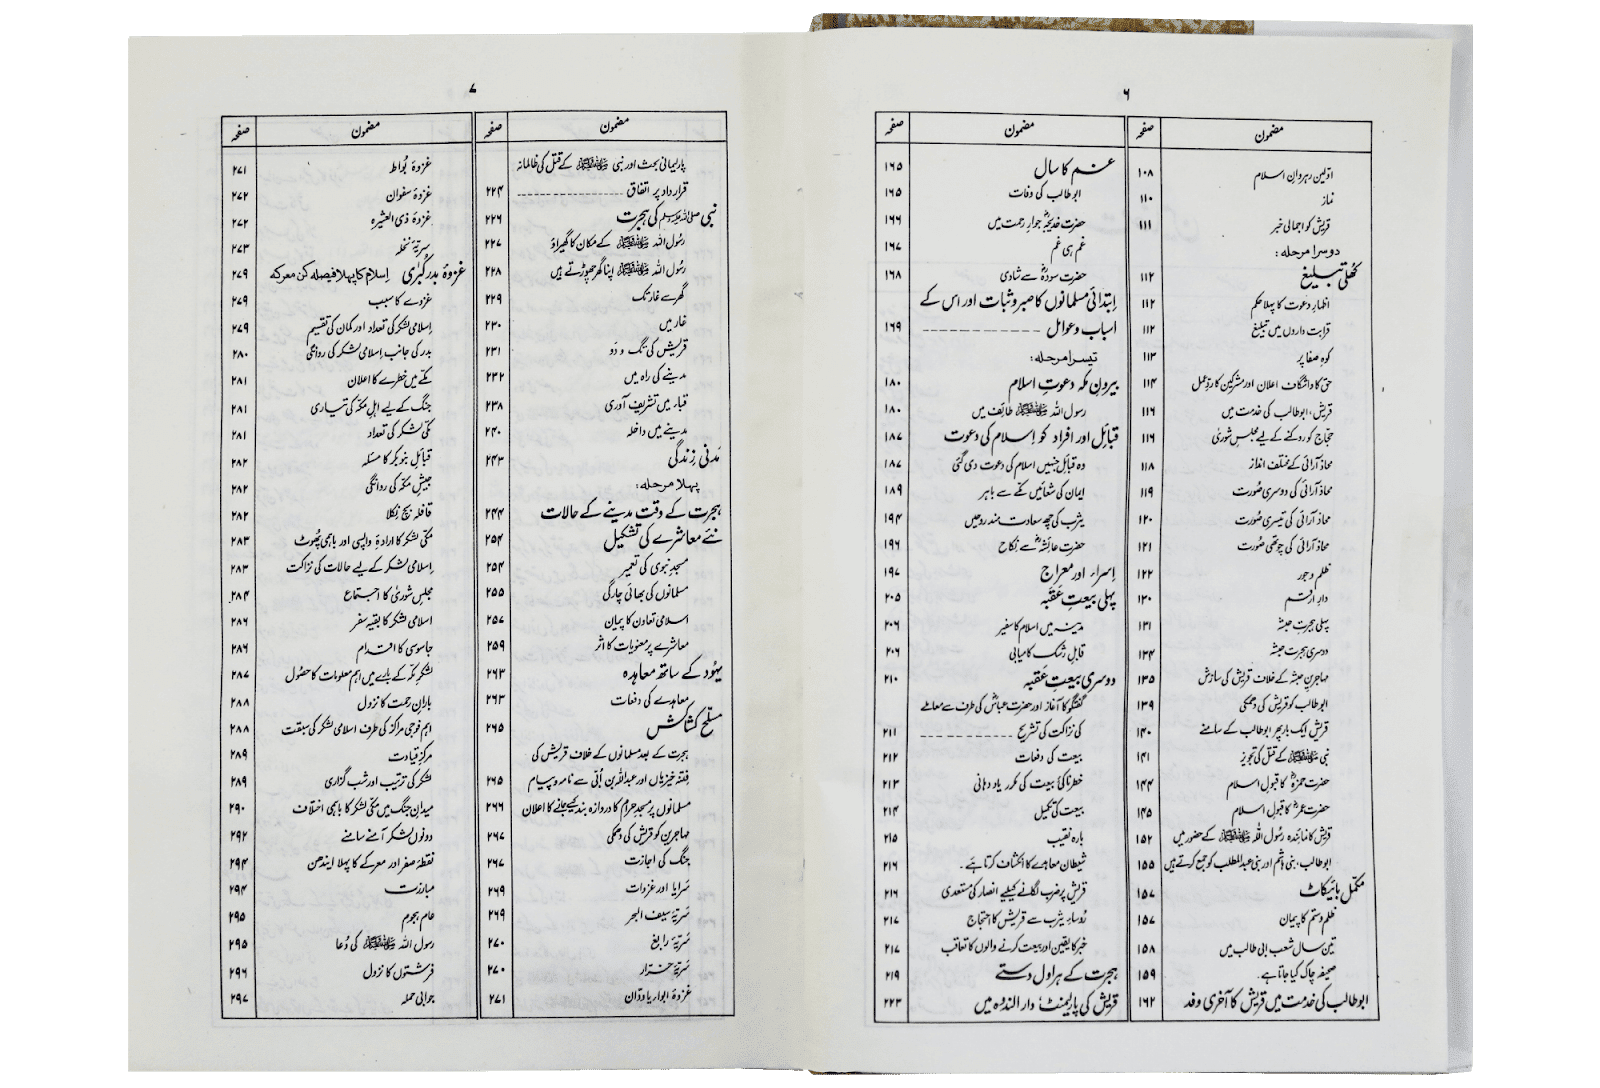 ۶
مضمون صفحہ
اوّلین رہروانِ اسلام ۱۰۸
نماز ۱۱۰
قریش کو اجمالی خبر ۱۱۱
دوسرا مرحلہ:
کھلی تبلیغ ۱۱۲
اظہارِ دعوت کا پہلا حکم ۱۱۲
قرابت داروں میں تبلیغ ۱۱۲
کوہِ صفا پر ۱۱۳
حق کا واشگاف اعلان اور مشرکین کا ردِّعمل ۱۱۴
قریش، ابوطالب کی خدمت میں ۱۱۶
حجاج کو روکنے کے لیے مجلسِ شوریٰ ۱۱۶
محاذ آرائی کے مختلف انداز ۱۱۸
محاذ آرائی کی دوسری صُورت ۱۱۹
محاذ آرائی کی تیسری صُورت ۱۲۰
محاذ آرائی کی چوتھی صُورت ۱۲۱
ظلم و جور ۱۲۲
دارِ ارقم ۱۳۰
پہلی ہجرتِ حبشہ ۱۳۱
دوسری ہجرتِ حبشہ ۱۳۴
مہاجرینِ حبشہ کے خلاف قریش کی سازش ۱۳۵
ابوطالب کو قریش کی دھمکی ۱۳۹
قریش ایک بار پھر ابوطالب کے سامنے ۱۴۰
نبی ﷺ کے قتل کی تجویز ۱۴۱
حضرت حمزہؓ کا قبولِ اسلام ۱۴۴
حضرت عمرؓ کا قبولِ اسلام ۱۴۵
قریش کا نمائندہ رسُول اللہ ﷺ کے حضور میں ۱۵۲
ابوطالب، بنی ہاشم اور بنی عبدالمطلب کو جمع کرتے ہیں ۱۵۵
مکمل بائیکاٹ ۱۵۷
ظلم و ستم کا پیمان ۱۵۷
تین سال شعب ابی طالب میں ۱۵۸
صحیفہ چاک کیا جاتا ہے۔ ۱۵۹
ابوطالب کی خدمت میں قریش کا آخری وفد ۱۶۲
مضمون صفحہ
غم کا سال ۱۶۵
ابوطالب کی وفات ۱۶۵
حضرت خدیجہؓ جوارِ رحمت میں ۱۶۶
غم ہی غم ۱۶۷
حضرت سودہؓ سے شادی ۱۶۸
اِبتدائی مسلمانوں کا صبر و ثبات اور اس کے
اسباب و عوامل ۱۶۹
تیسرا مرحلہ:
بیرونِ مکہ دعوتِ اسلام ۱۸۰
رسول اللہ ﷺ طائف میں ۱۸۰
قبائل اور افراد کو اِسلام کی دعوت ۱۸۷
وہ قبائل جنہیں اسلام کی دعوت دی گئی ۱۸۷
ایمان کی شعائیں مکّے سے باہر ۱۸۹
یثرب کی چھ سعادت مند روحیں ۱۹۴
حضرت عائشہؓ سے نکاح ۱۹۶
اِسراء اور معراج ۱۹۷
پہلی بیعتِ عَقَبہ ۲۰۵
مدینہ میں اسلام کا سفیر ۲۰۶
قابلِ رشک کامیابی ۲۰۶
دوسری بیعتِ عَقَبہ ۲۱۰
گفتگو کا آغاز اور حضرت عباسؓ کی طرف سے معاملے
کی نزاکت کی تشریح ۲۱۱
بیعت کی دفعات ۲۱۲
خطرناکیِ بیعت کی مکرر یاد دہانی ۲۱۳
بیعت کی تکمیل ۲۱۴
بارہ نقیب ۲۱۵
شیطان معاہدے کا انکشاف کرتا ہے۔ ۲۱۶
قریش پر ضرب لگانے کیلئے انصار کی مستعدی ۲۱۶
رُوساءِ یثرب سے قریش کا احتجاج ۲۱۷
خبر کا یقین اور بیعت کرنے والوں کا تعاقب ۲۱۷
ہجرت کے ہراول دستے ۲۱۹
قریش کی پارلیمنٹ: دارالندوہ میں ۲۲۳
۷
مضمون صفحہ
پارلیمانی بحث اور نبی ﷺ کے قتل کی ظالمانہ
قرارداد پر اتفاق ۲۲۴
نبی صلی اللہ علیہ وسلم کی ہجرت ۲۲۶
رسُول اللہ ﷺ کے مکان کا گھیراؤ ۲۲۷
رسُول اللہ ﷺ اپنا گھر چھوڑتے ہیں ۲۲۸
گھر سے غار تک ۲۲۹
غار میں ۲۳۰
قریش کی تگ و دَو ۲۳۱
مدینے کی راہ میں ۲۳۲
قباء میں تشریف آوری ۲۳۸
مدینے میں داخلہ ۲۴۰
مَدنی زندگی ۲۴۳
پہلا مرحلہ:
ہجرت کے وقت مدینے کے حالات ۲۴۴
نئے معاشرے کی تشکیل ۲۵۴
مسجدِ نبوی کی تعمیر ۲۵۴
مسلمانوں کی بھائی چارگی ۲۵۵
اسلامی تعاون کا پیمان ۲۵۷
معاشرے پر معنویات کا اثر ۲۵۹
یہُود کے ساتھ معاہدہ ۲۶۳
معاہدے کی دفعات ۲۶۳
مسلح کشاکش ۲۶۵
ہجرت کے بعد مسلمانوں کے خلاف قریش کی
فتنہ خیزیاں اور عبداللہ بن اُبَیّ سے نامہ و پیام ۲۶۵
مسلمانوں پر مسجدِ حرام کا دروازہ بند کیے جانے کا اعلان ۲۶۶
مہاجرین کو قریش کی دھمکی ۲۶۷
جنگ کی اجازت ۲۶۷
سَرایا اور غزوات ۲۶۹
سَریّۂ سیف البحر ۲۶۹
سَریّۂ رابغ ۲۷۰
سَریّۂ خرّار ۲۷۰
غزوۂ ابواء یا ودّان ۲۷۱
مضمون صفحہ
غزوۂ بُواط ۲۷۱
غزوۂ سفوان ۲۷۲
غزوۂ ذی العشیرہ ۲۷۲
سریّۂ نخلہ ۲۷۳
غزوۂ بدرِ کُبریٰ اِسلام کا پہلا فیصلہ کن معرکہ ۲۷۹
غزوے کا سبب ۲۷۹
اِسلامی لشکر کی تعداد اور کمان کی تقسیم ۲۷۹
بدر کی جانب اِسلامی لشکر کی روانگی ۲۸۰
مکّے میں خطرے کا اعلان ۲۸۱
جنگ کے لیے اہلِ مکّہ کی تیاری ۲۸۱
مکّی لشکر کی تعداد ۲۸۱
قبائلِ بنو بکر کا مسئلہ ۲۸۲
جیشِ مکّہ کی روانگی ۲۸۲
قافلہ بچ نِکلا ۲۸۲
مکّی لشکر کا ارادۂ واپسی اور باہمی پھُوٹ ۲۸۳
اِسلامی لشکر کے لیے حالات کی نزاکت ۲۸۳
مجلسِ شوریٰ کا اجتماع ۲۸۴
اسلامی لشکر کا بقیہ سفر ۲۸۶
جاسوسی کا اقدام ۲۸۶
لشکرِ مکّہ کے بارے میں اہم معلومات کا حصُول ۲۸۷
بارانِ رحمت کا نزول ۲۸۸
اہم فوجی مراکز کی طرف اسلامی لشکر کی سبقت ۲۸۸
مرکزِ قیادت ۲۸۹
لشکر کی ترتیب اور شب گزاری ۲۸۹
میدانِ جنگ میں مکّی لشکر کا باہمی اختلاف ۲۹۰
دونوں لشکر آمنے سامنے ۲۹۲
نقطۂ صفر اور معرکے کا پہلا ایندھن ۲۹۴
مبارزت ۲۹۴
عام ہجوم ۲۹۵
رسول اللہ ﷺ کی دُعا ۲۹۵
فرشتوں کا نزول ۲۹۶
جوابی حملہ ۲۹۷